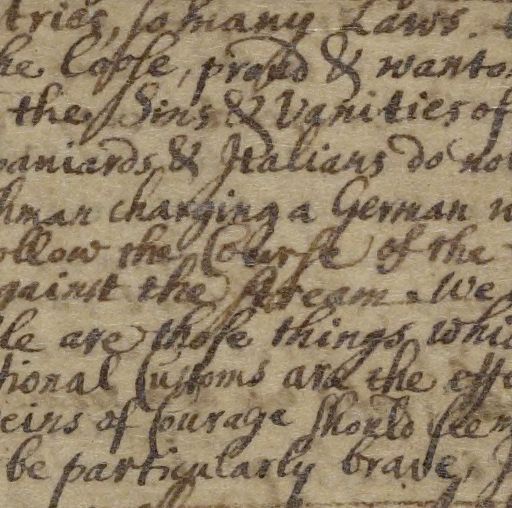 tries, so many Laws.
he Loose, proud & wanton
the Sins & Vanities of
paniards & Italians do not
hman charging a German
ollow the Course of the
gainst the stream. We
le are those things whi
tional Customs are the effe
eins of Courage should seem
be particularly brave,